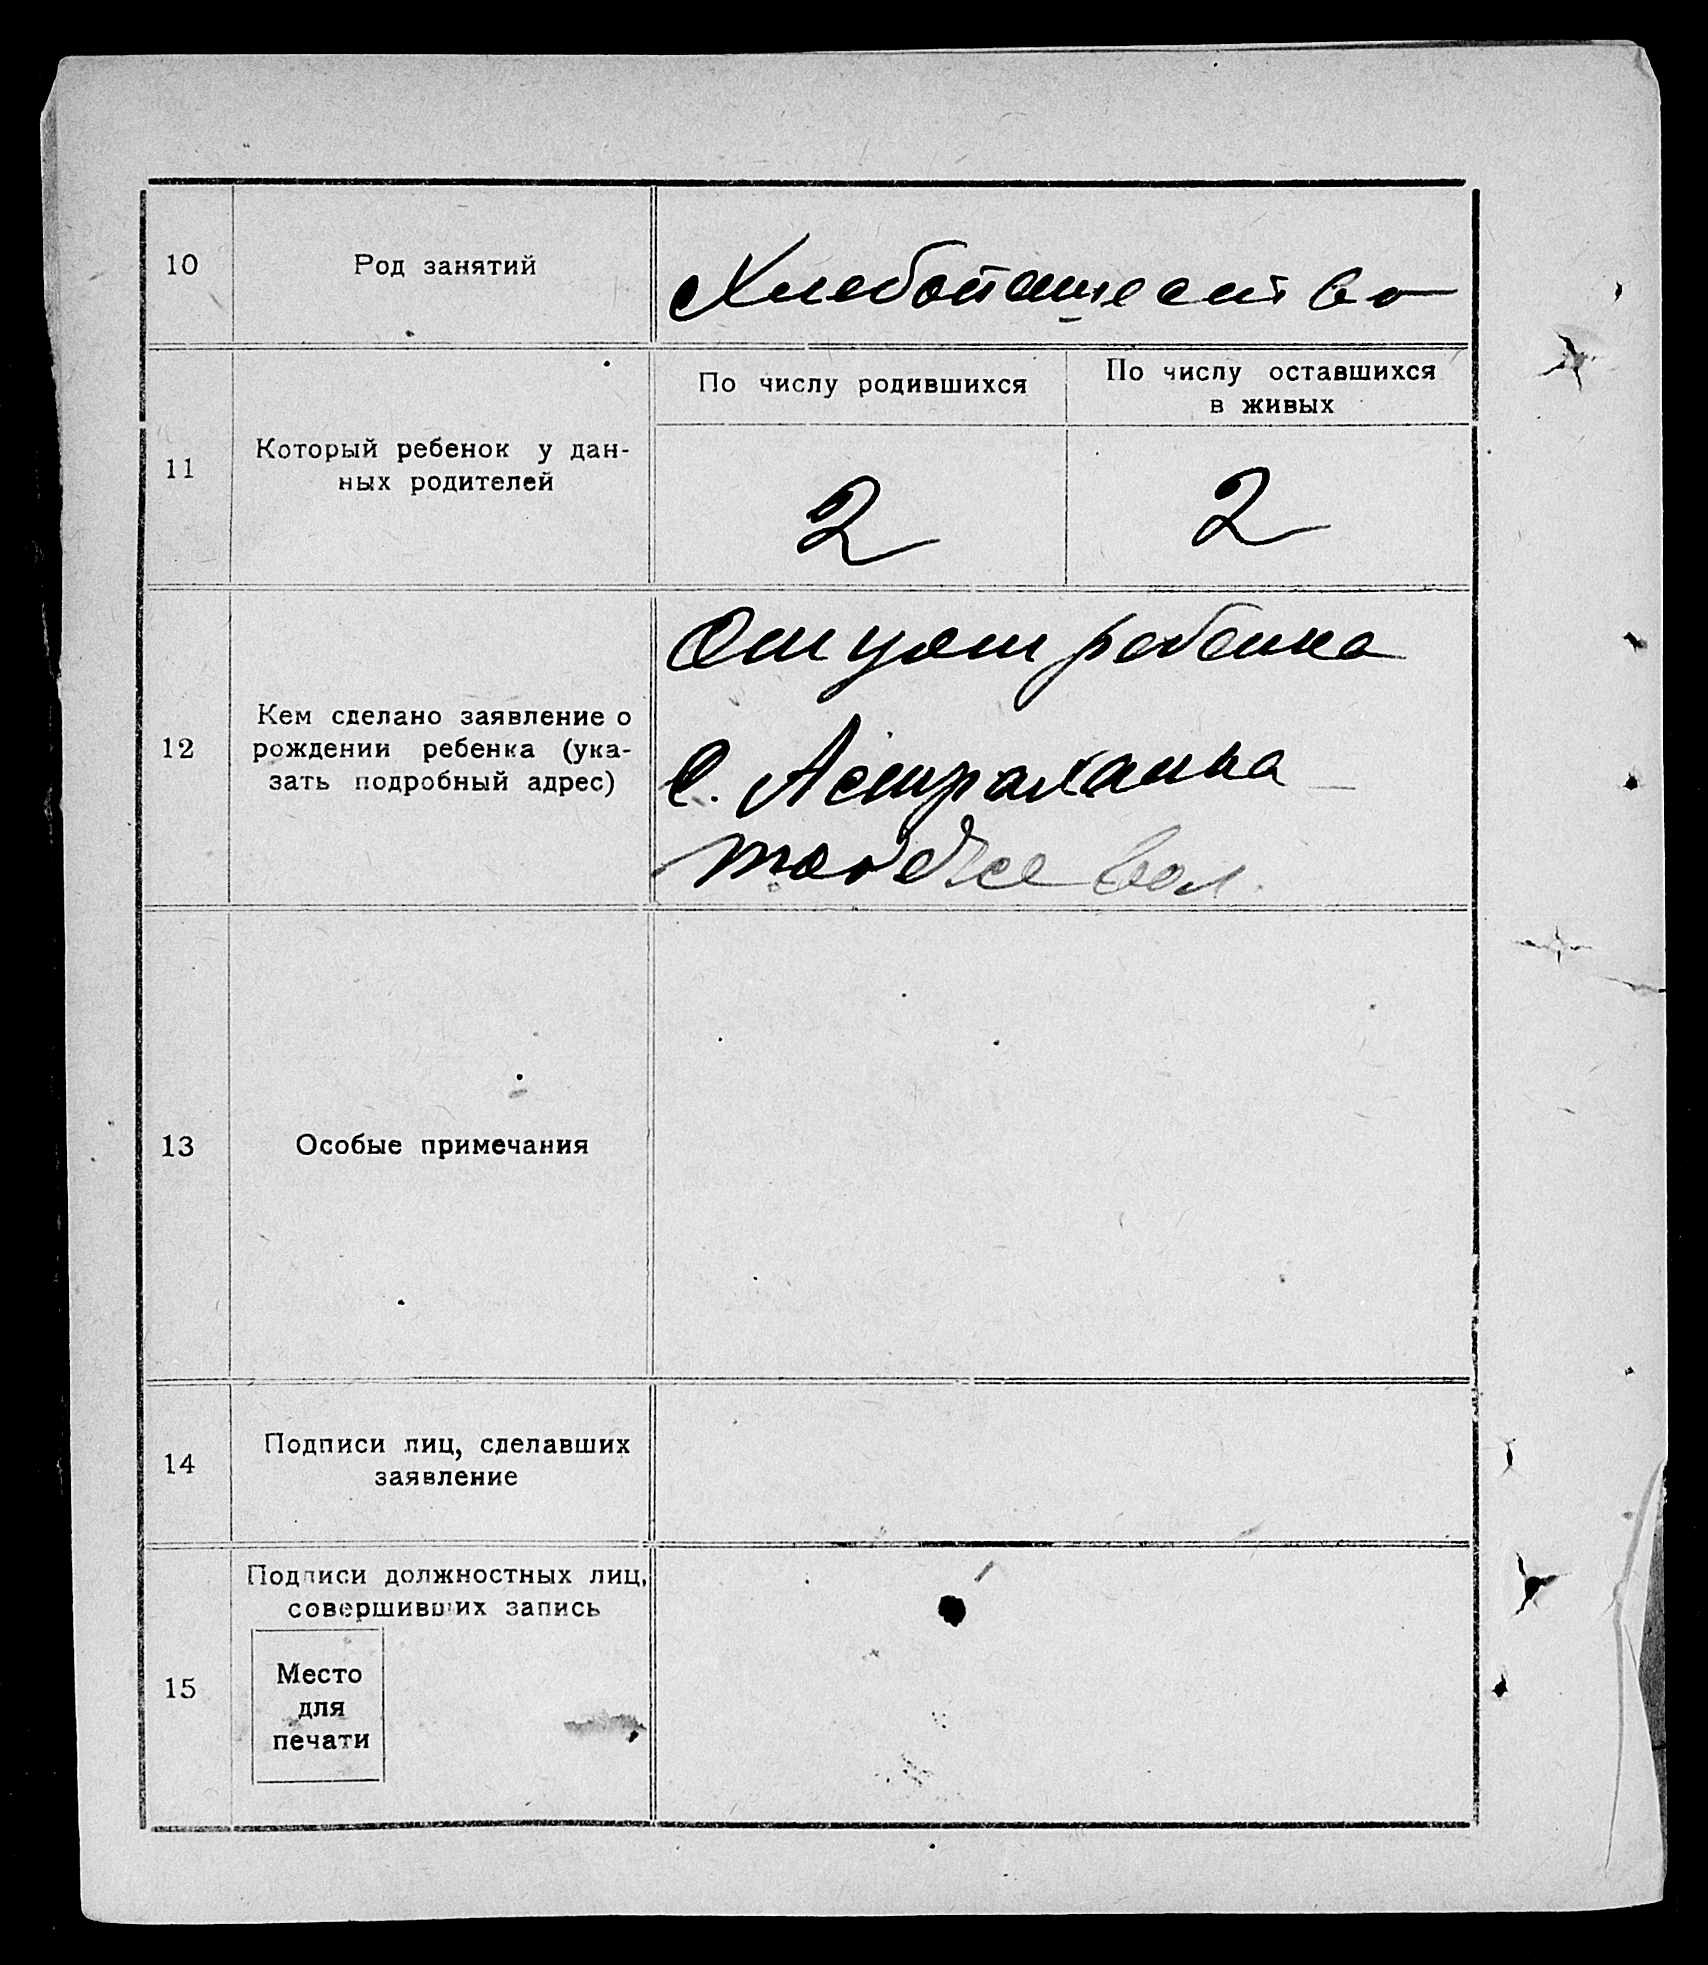 10 Род занятий Хлебопашество
По числу родившихся По числу оставшихся
в живых
11 Который ребенок у дан-
ных родителей
2 2
12 Кем сделано заявление о
рождении ребенка (ука-
зать подробный адрес)
Отцом ребенка
С. Астраханка
той же вол.
13 Особые примечания
14 Подписи лиц, сделавших
заявление
Подписи должностных лиц,
совершивших запись
15 Место
для
печати